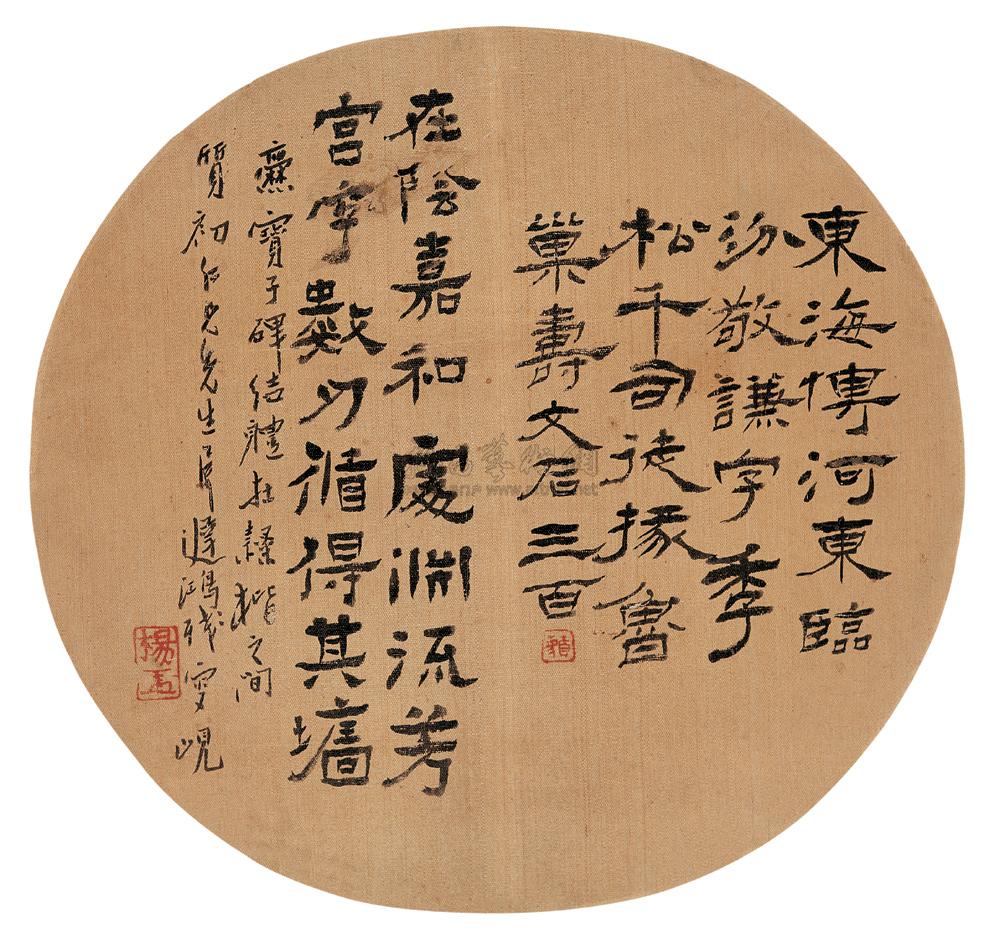 東海傅河東臨
汾敬謙字季
松千司徒掾魯
巢壽文后三百
在陰嘉和處淵流芳
宮宇數刃循得其墻
爨寶子碑結體在隸楷之間
質初仁兄先生屬遲鴻殘叟峴